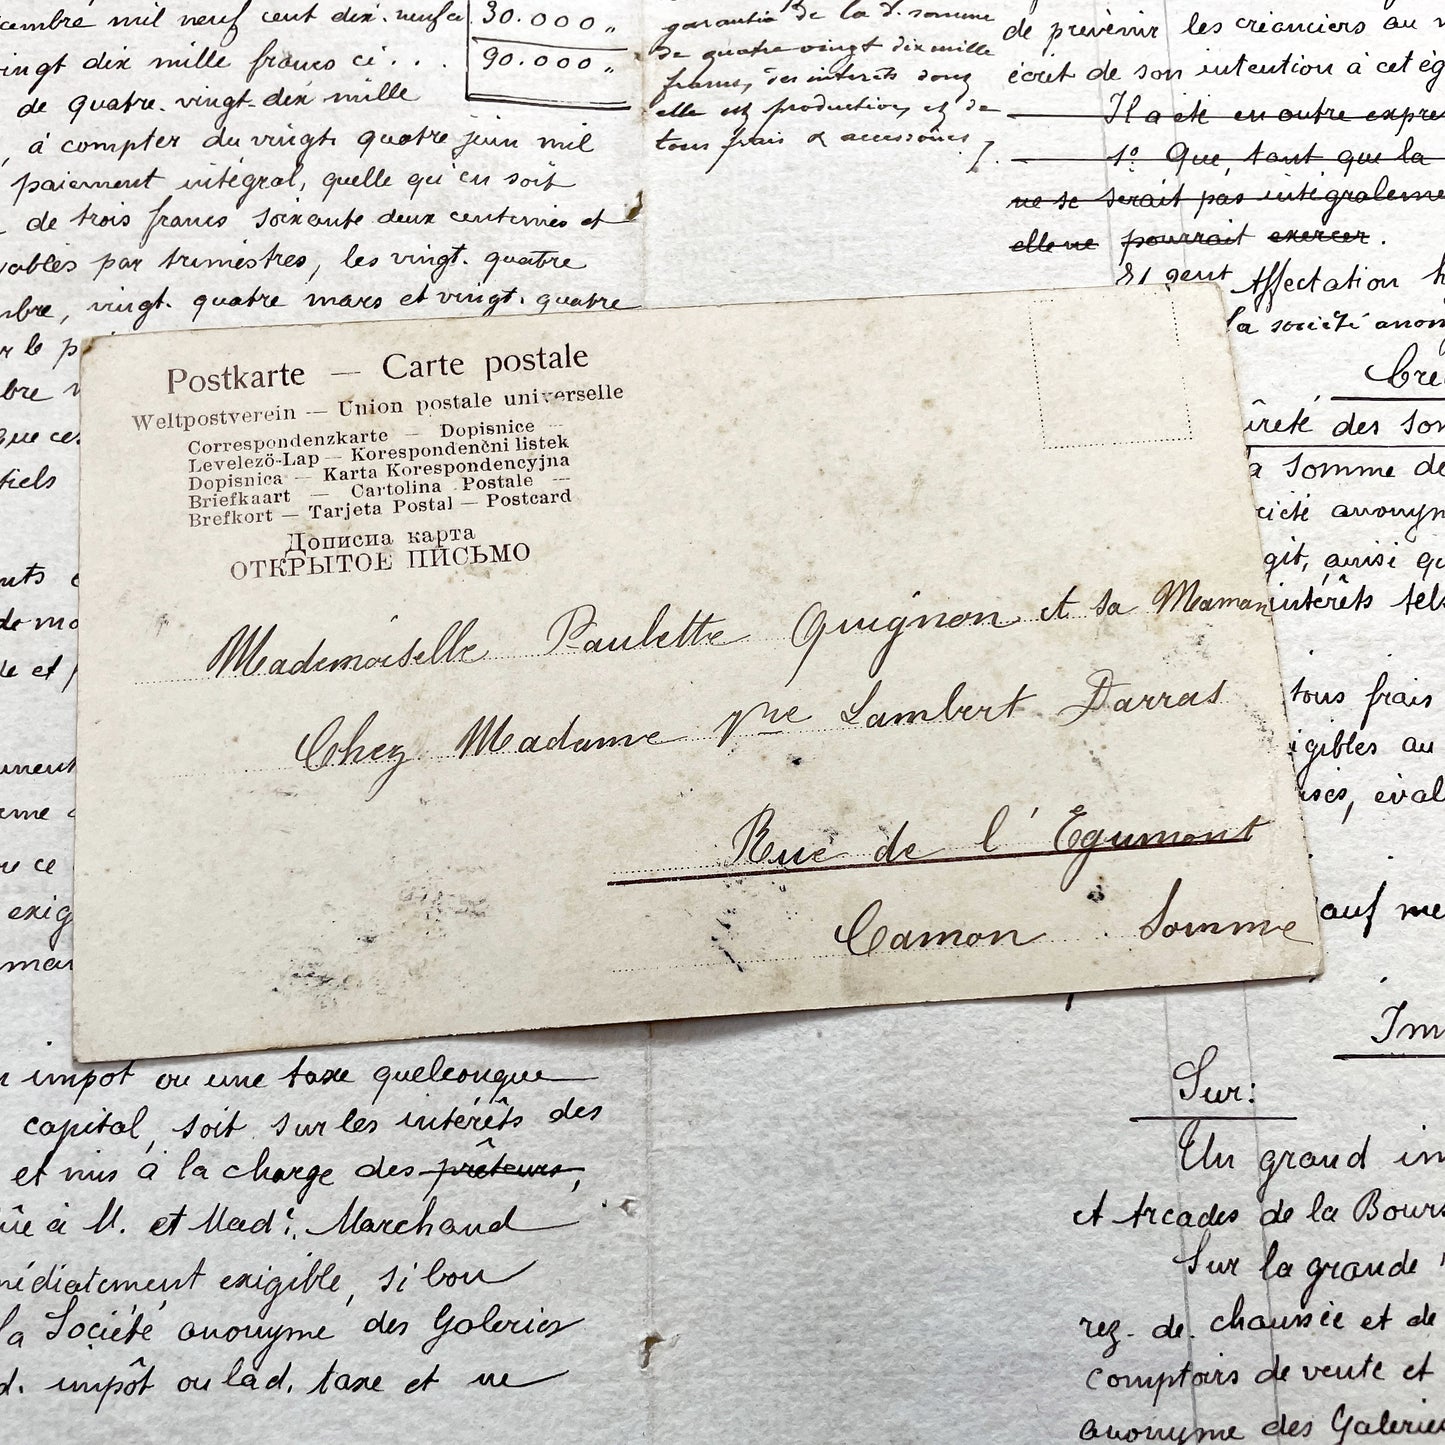 cembre mil neuf cent dix. neuf
30.000 „
vingt dix mille francs ci . . .
90.000 „
de quatre. vingt. dix mille
, à compter du vingt. quatre juin mil
paiement intégral, quelle qu'en soit
de trois francs soixante deux centimes et
yables par trimestres, les vingt. quatre
mbre, vingt. quatre mars et vingt. quatre
r le p
bre
que ces
tiels
garantie de la d. somme
de quatre vingt dix mille
francs, des intérêts dont
elle est production, et de
tous frais & accessoires
de prévenir les créanciers au
écrit de son intention à cet ég
Il a été en outre expre
1º Que, tant que la
ne se serait pas intégraleme
elle ne pourrait exercer .
Affectation h
la société anony
Cré
ûreté des som
a somme de
ciété anonym
git, ainsi qu
intérêts tels
tous frais
igibles au
ises, éval
auf me
Im
Postkarte — Carte postale
Weltpostverein — Union postale universelle
Correspondenzkarte — Dopisnice —
Levelező-Lap — Korespondenční listek
Dopisnica — Karta Korespondencyjna
Briefkaart — Cartolina Postale —
Brefkort — Tarjeta Postal — Postcard
Дописна карта
ОТКРЫТОЕ ПИСЬМО
Mademoiselle Paulette Quignon et sa Maman
Chez Madame Vve Lambert Darras
Rue de l'Egumont
Camon Somme
nts
de mo
de et
ument
eme
u ce
exig
mar
n impôt ou une taxe quelconque
capital, soit sur les intérêts des
et mis à la charge des prêteurs,
ûe à M. et Mad.e Marchand
médiatement exigible, si bon
la Société anonyme des Galeries
d. impôt ou lad. taxe et ne
Sur:
Un grand im
et Arcades de la Bours
Sur la grande
rez. de. chaussée et de
comptoirs de vente et
anonyme des Galeries